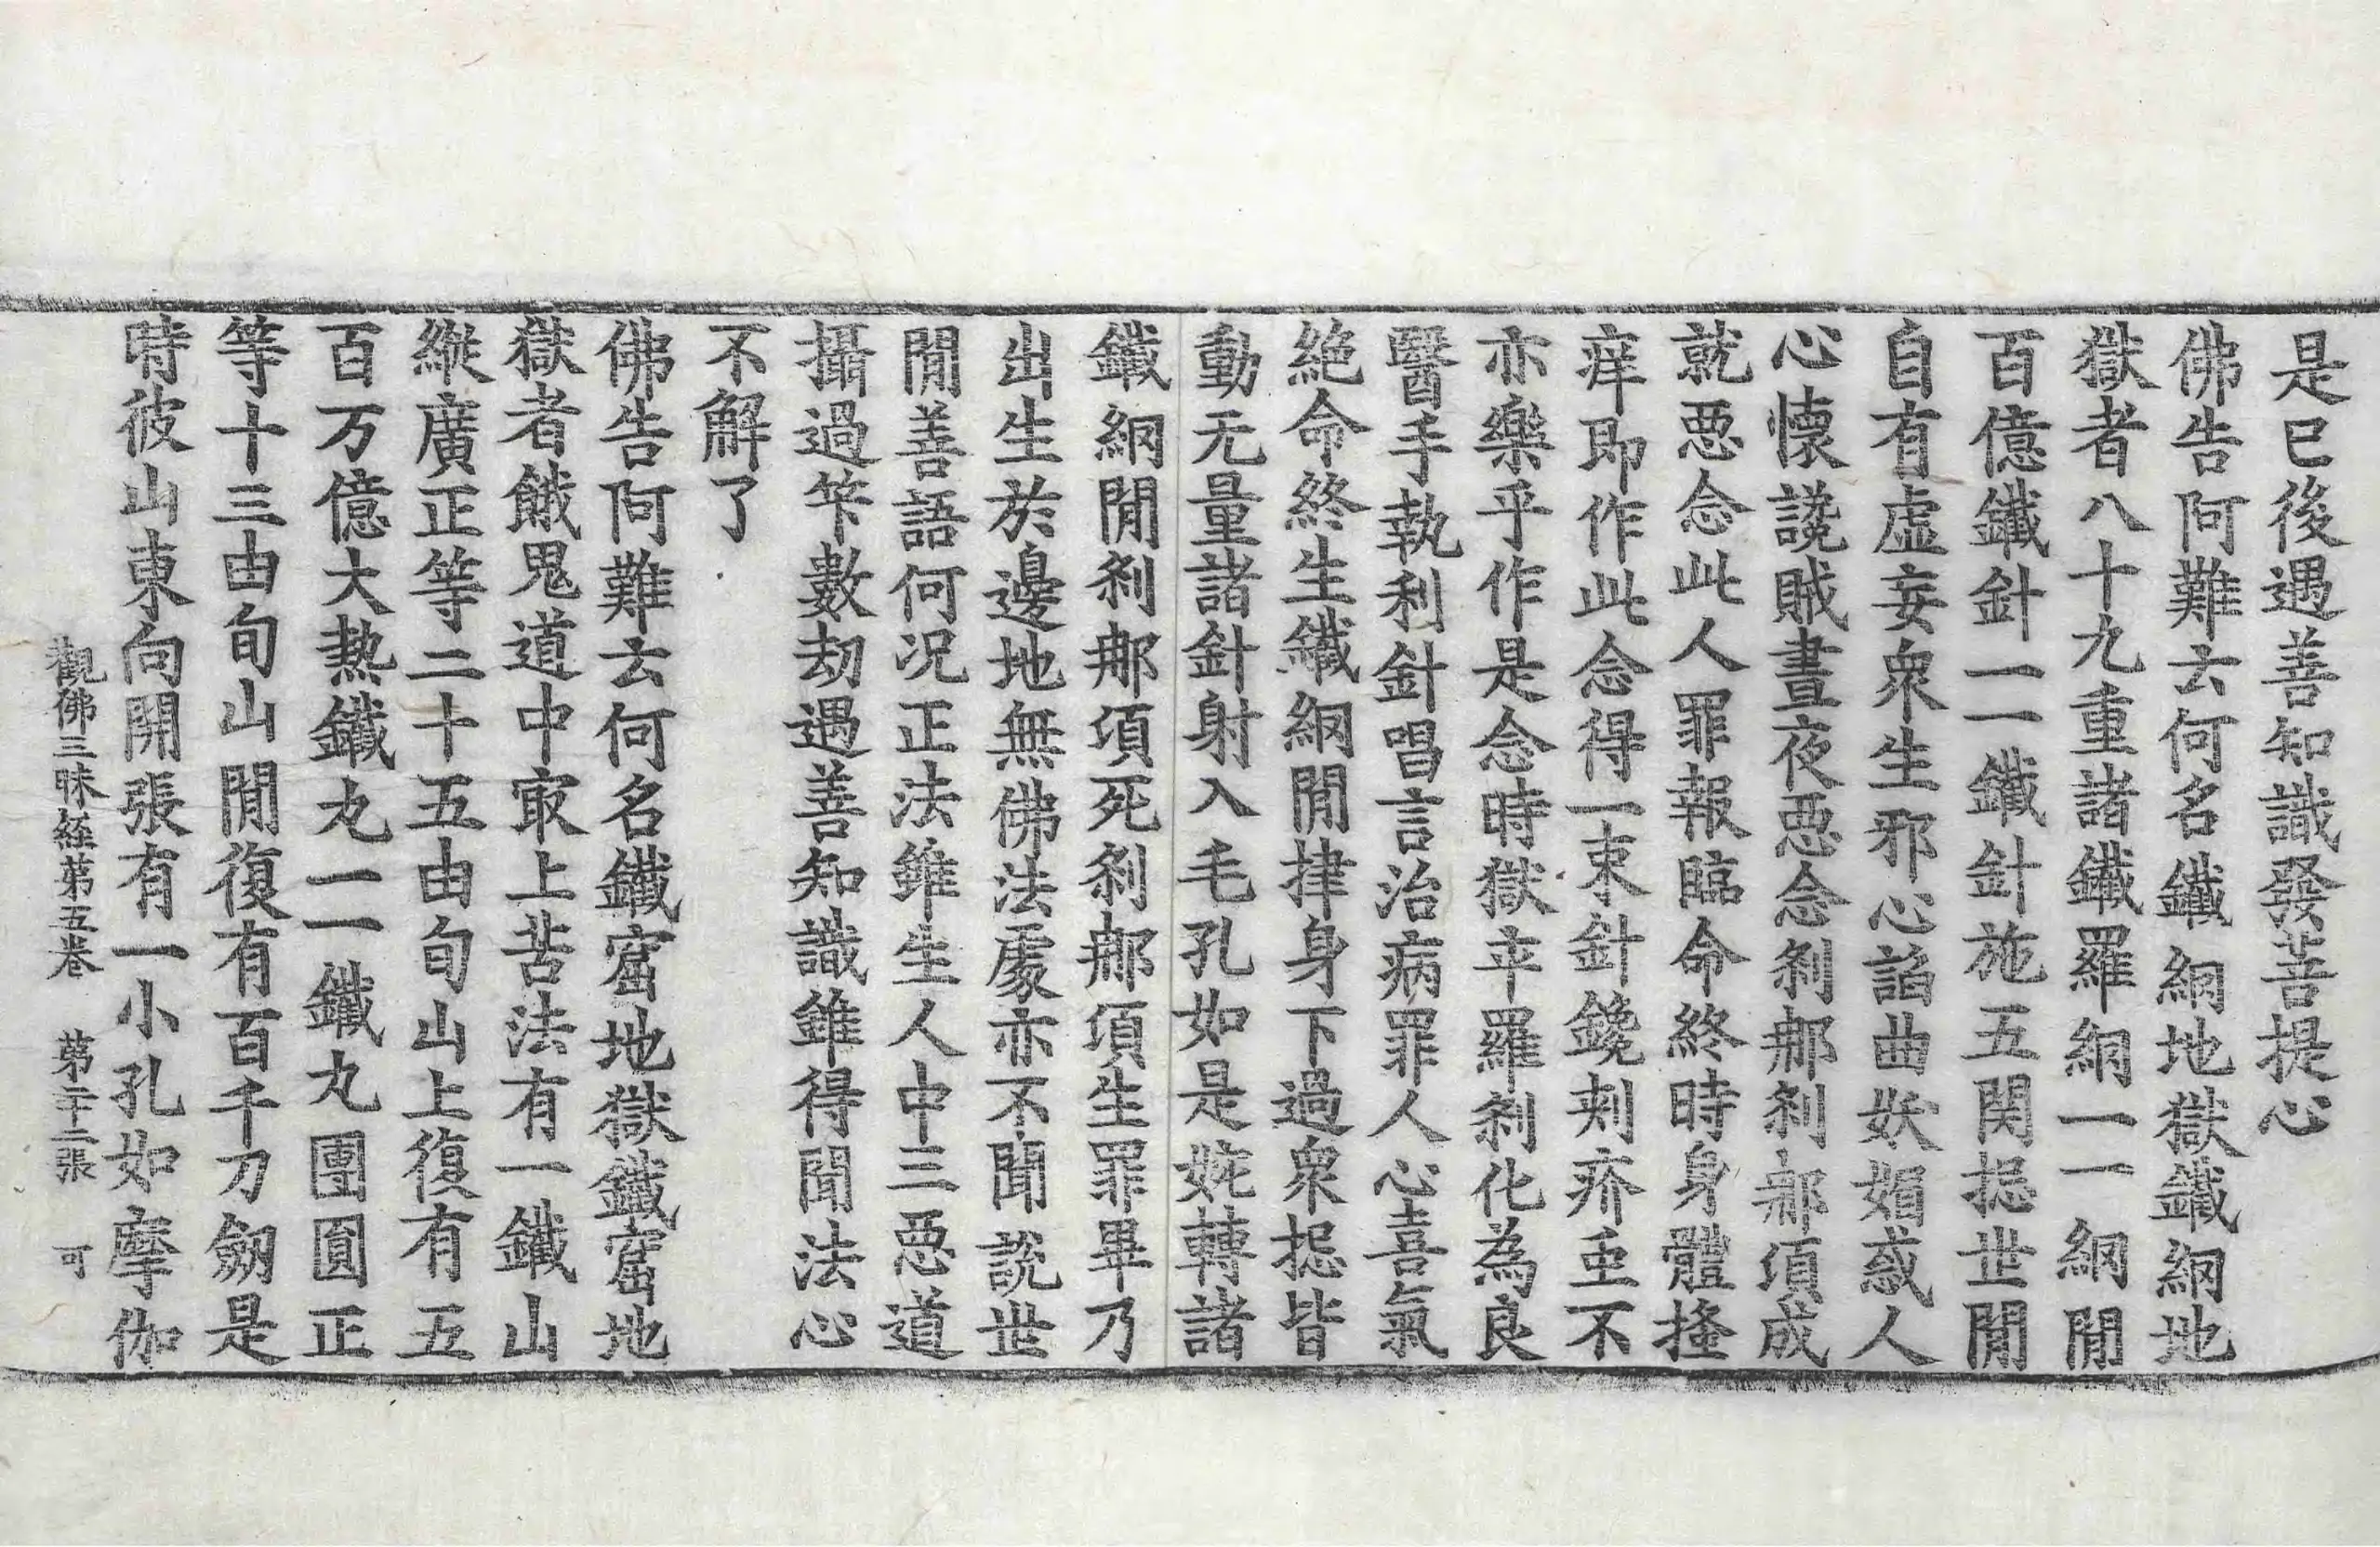 是已後遇善知識發菩提心
佛告阿難云何名鐵網地獄鐵網地
獄者八十九重諸鐵羅網一一網間
百億鐵針一一鐵針施五関捴世間
自有虛妄衆生邪心諂曲妖媚惑人
心懷讒賊晝夜惡念剎那剎那頃成
就惡念此人罪報臨命終時身體搔
痒即作此念得一束針鑱刺疥虫不
亦樂乎作是念時獄卒羅剎化為良
醫手執利針唱言治病罪人心喜氣
絶命終生鐵網間挊身下過衆捴皆
動无量諸針射入毛孔如是婉轉諸
鐵網間剎那頃死剎那頃生罪畢乃
出生於邊地無佛法處亦不聞說世
間善語何況正法雖生人中三惡道
攝過筭數劫遇善知識雖得聞法心
不解了
佛告阿難云何名鐵窟地獄鐵窟地
獄者餓鬼道中㝡上苦法有一鐵山
縱廣正等二十五由旬山上復有五
百万億大熱鐵丸一一鐵丸團圓正
等十三由旬山間復有百千刀劒是
時彼山東向開張有一小孔如摩伽
觀佛三昧經第五卷 第二十二張 可